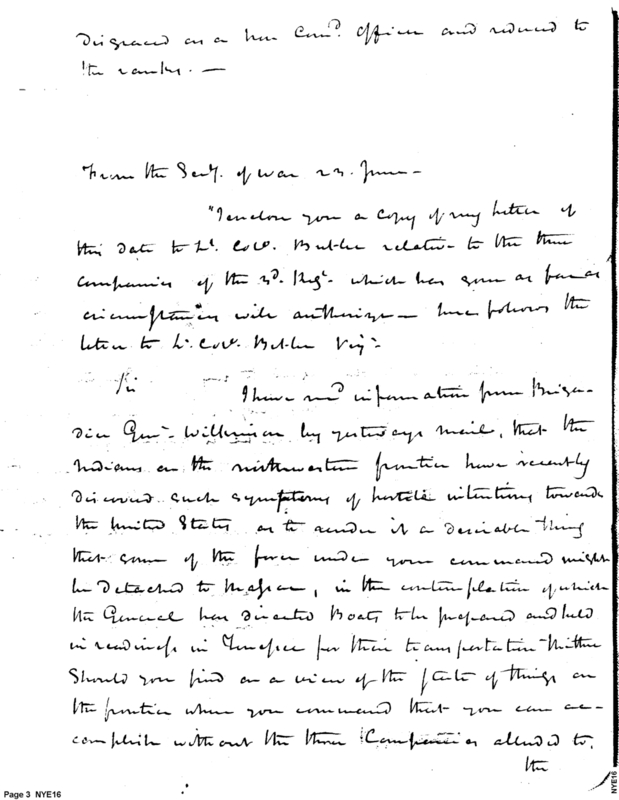 disgraced as a non Comd. Officer and reduced to
the ranks. —
From the Secy. of war 23. June —
"I enclose you a Copy of my letter of
this date to Lt. Col. Butler relative to the three
Companies of the 3d. Regt. which has gone as far as
circumstances will authorize — here follows the
letter to Lt. Col. Butler Viz—
Sir I have recd information from Briga-
dier Genl. Wilkinson by yesterdays mail, that the
Indians on the northwestern frontier have recently
discovered such symptoms of hostile intentions towards
the United States as to render it a desirable thing
that some of the force under your command might
be detached to Massac, in the contemplation of which
the General has directed Boats to be prepared and held
in readiness in Tenessee for their transportation thither
Should you find on a view of the state of things on
the frontier where you command that you can ac-
complish without the three Companies alluded to,
the
Page 3 NYE16
NYE16